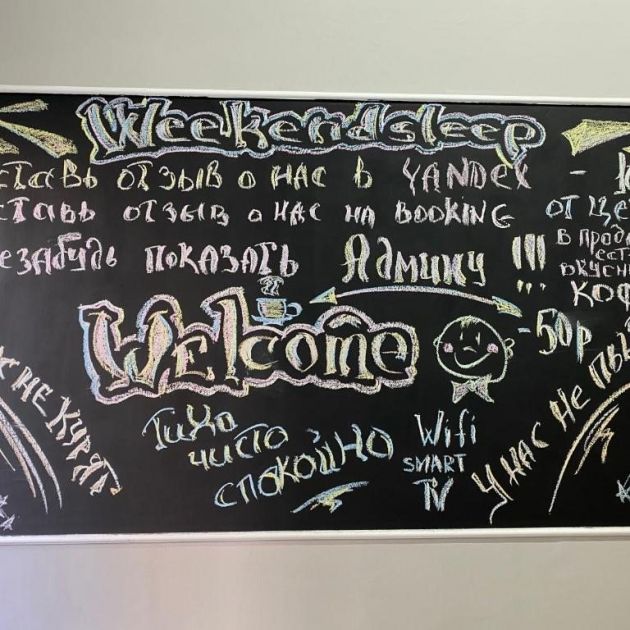 Weekendsleep
СТАВЬ ОТЗЫВ О НАС В YANDEX - 10
СТАВЬ ОТЗЫВ О НАС НА BOOKING ОТ ЦЕ
Е ЗАБУДЬ ПОКАЗАТЬ Админу !!!
В ПРОД
ЕСТ
ВКУСН
КОФ
- 50р
Welcome
С НЕ КУРЯТ
Тихо
чисто
спокойно
Wifi
SMART
TV
У НАС НЕ ПЬ